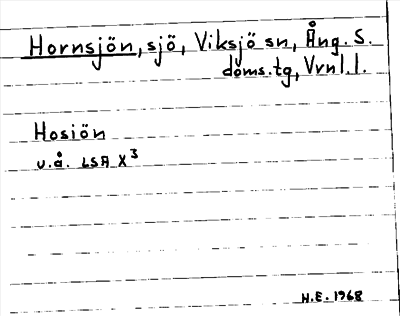 Hornsjön, sjö, Viksjö sn, Ång. S.
doms.tg, Vrnl. l.
Hosiön
u.å. LSA X3
H.E. 1968